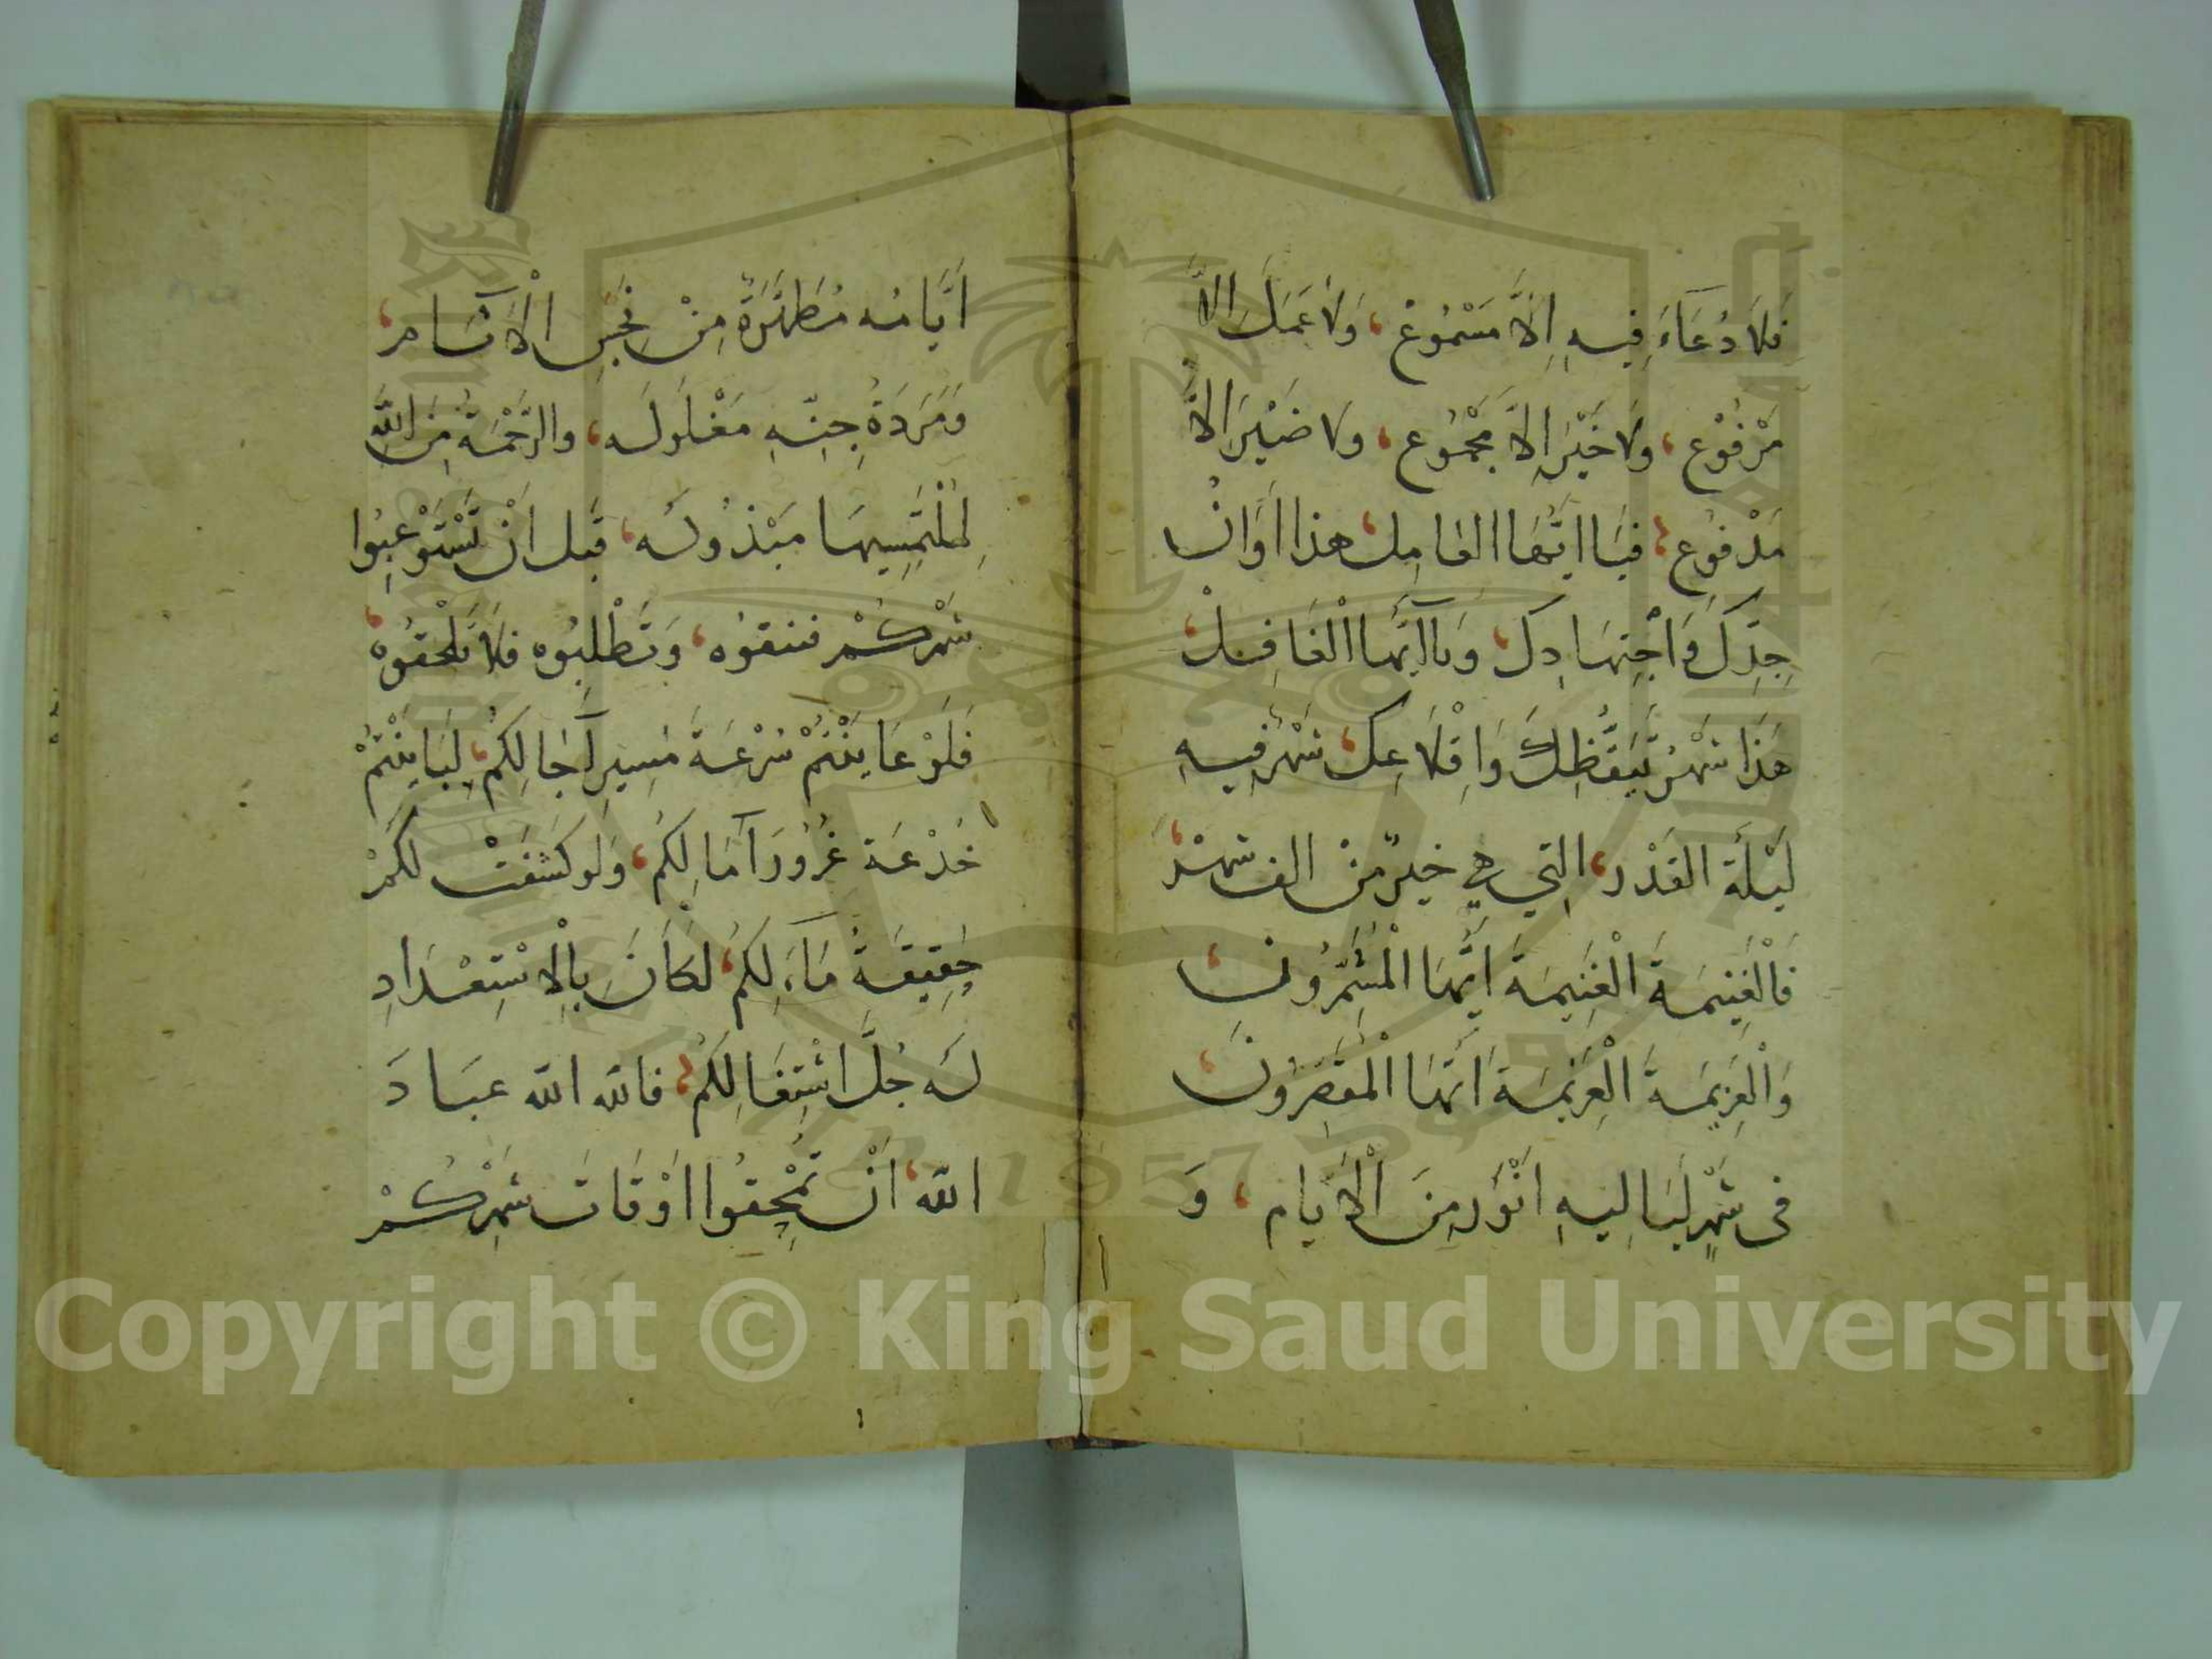 فَلَا دُعَاءَ فِيهِ اِلَّا مَسْمُوعْ، وَلَا عَمَلَ اِلاَّ
مَرْفُوْع، وَلَا خَيْرَ اِلاَّ مَجْمُوع، وَلَا ضَيْرَ اِلاَّ
مَدْفوُع، فيَا ايُّهَا العَامِل، هذا اَوَانُ
جِدِّكَ وَاجْتِهَادِكَ، وَيَآ اَيُّها الْغَافِلْ،
هَذَا شَهْرُ تَيَقُّظِكَ وَاِقْلَاعِك، شَهْرٌ فِيهِ
لَيْلَةُ القَدْر، التِي هِيَ خيرٌ مِّنْ الف شَهْرْ،
فَالْغَنِيمَةَ الْغَنِيمَةَ اَيُّهَا الْمُشَمِّرُونَ،
وَالْعَزِيمَةَ الْعَزِيمَةَ اَيُّهَا الْمُقَصِّرُونَ،
فى شَهْرٍ لَيَالِيهِ اَنْوَرُ مِنَ الْاَيَّامِ، وَ
اَيَّامُه مُطَهَّرَةٌ مِنْ نَجَسِ الْآثَامِ،
وَمَرَدَةُ جِنِّهِ مَغْلُولَه، وَالرَّحْمَةُ مِنَ اللّه
لِمُلْتَمِسِيهَا مَبْذُولَه، قَبل اَنْ تَسْتَوْعِبُوا
شَهْرَكُمْ فتنفقوُه، وَتَطْلبُوه فلَا تَلْحَقوُه،
فَلَوْ عَايَنْتُمْ سُرْعَةَ مَسِيرِ آجَالِكُمْ، لَبَايَنْتُمْ
خُدْعَةَ غُرُورِ آمَالِكُمْ، وَلَو كَشَفَتْ لَكُمْ
حَقِيقَةُ مَآءَ لِكُمْ، لكَانَ بِالْاِسْتِعْدَادِ
لَه جُلَّ اشْتِغَالِكُمْ، فالله الله عبَادَ
الله، اَنْ تُمْحِقُوا اَوْقَاتَ شَهْرِكُمْ
Copyright © King Saud University
1957